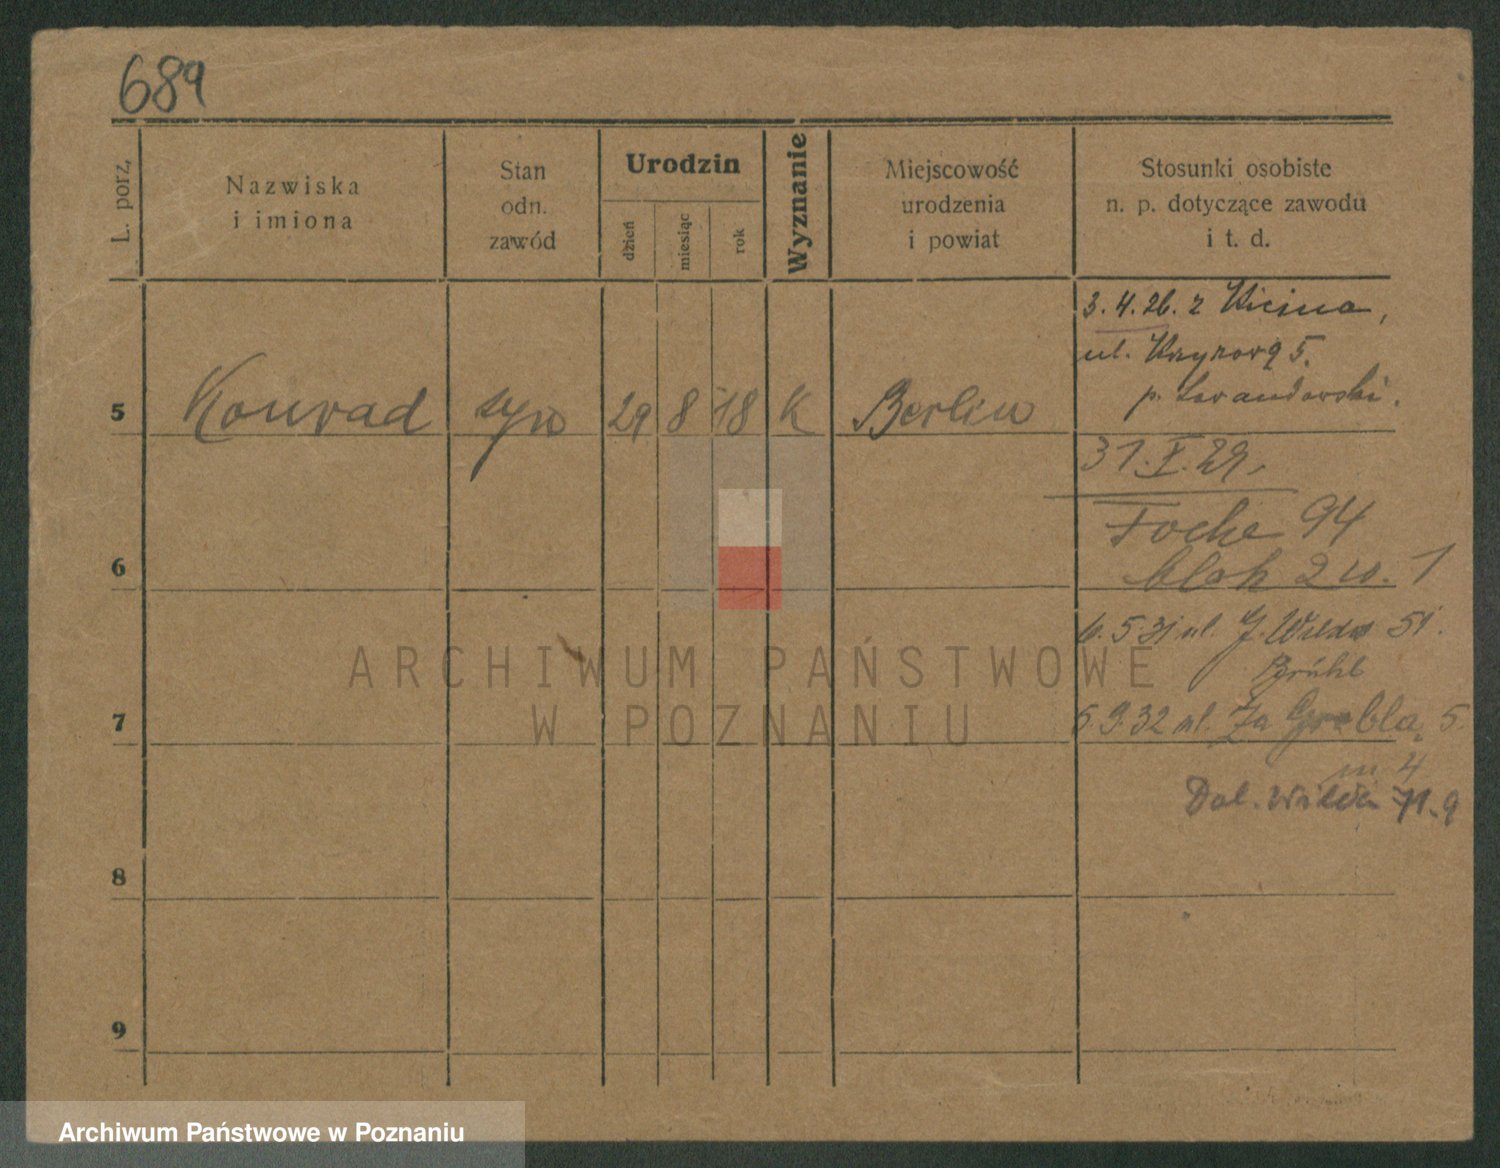 689
L. porz.
Nazwiska
i imiona
Stan
odn.
zawód
Urodzin
dzień
miesiąc
rok
Wyznanie
Miejscowość
urodzenia
i powiat
Stosunki osobiste
n. p. dotyczące zawodu
i t. d.
3.4.26. z Kicina,
ul. 5.
p. Lewandowski.
5 Konrad syn 29 8 18 K Berlin
31.X.29.
Focha 94
6 blok 2 w. 1
6.5.31 ul. G. Wilda 51.
Brühl
7 5.9.32 ul. Za Groblą 5.
m 4
Dol. Wilda 71.9
8
9
ARCHIWUM PAŃSTWOWE
W POZNANIU
Archiwum Państwowe w Poznaniu